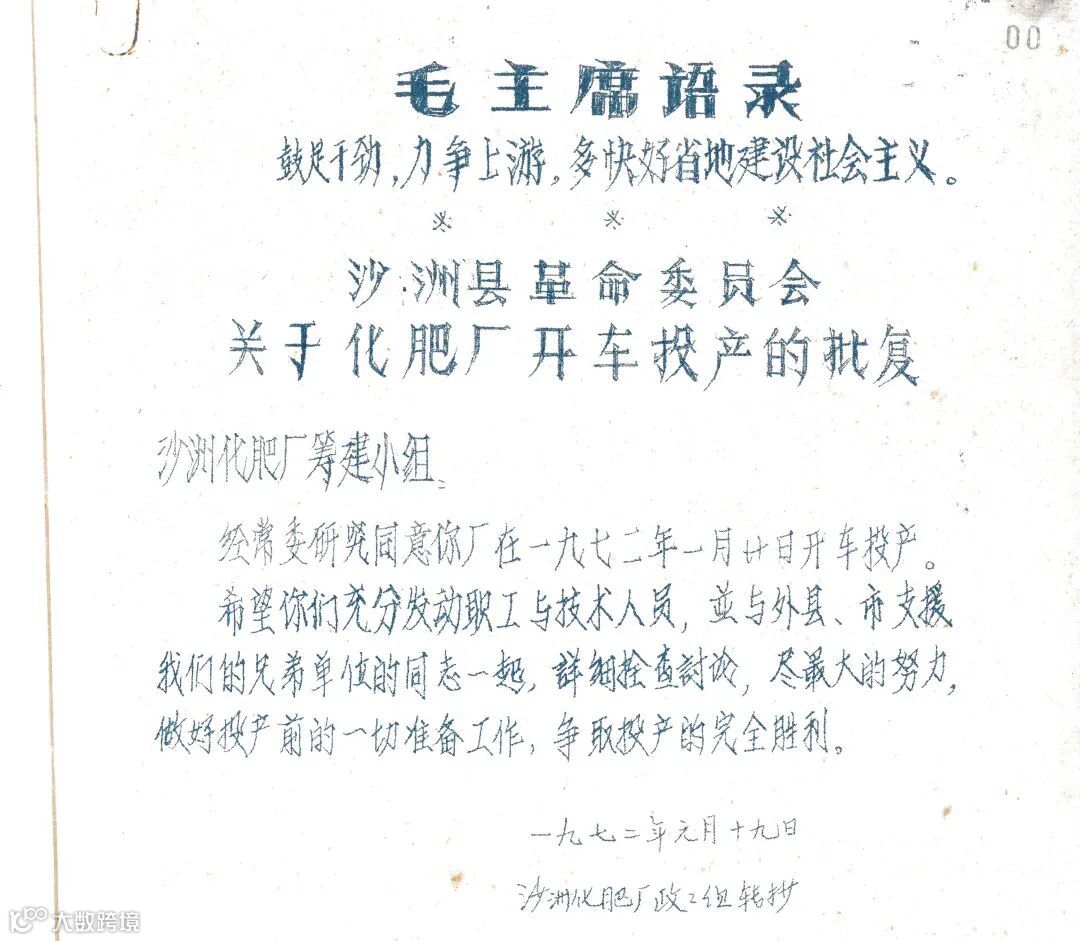 00
毛主席语录
鼓足干劲，力争上游，多快好省地建设社会主义。
※ ※ ※
沙洲县革命委员会
关于化肥厂开车投产的批复
沙洲化肥厂筹建小组：
经常委研究同意你厂在一九七二年一月廿日开车投产。
希望你们充分发动职工与技术人员，並与外县、市支援
我们的兄弟单位的同志一起，詳细检查討论，尽最大的努力，
做好投产前的一切准备工作，争取投产的完全胜利。
一九七二年元月十九日
沙洲化肥厂政工组转抄
大数跨境